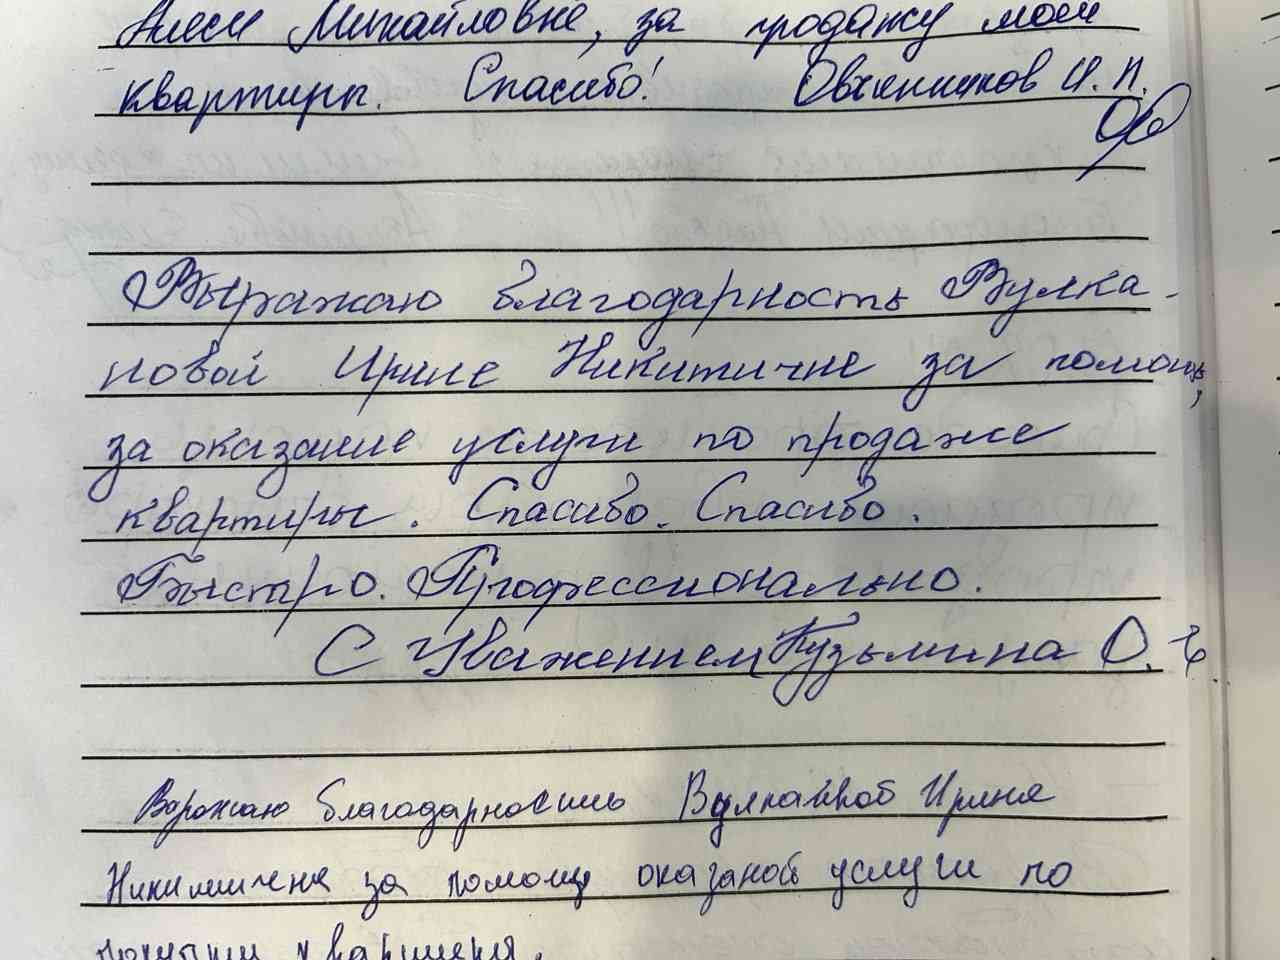 Алесе Михайловне, за продажу моей
квартиры. Спасибо! Овчинников И. П.
Выражаю благодарность Вулка-
новой Ирине Никитичне за помощь,
за оказание услуги по продаже
квартиры. Спасибо. Спасибо.
Быстро. Профессионально.
С Уважением Кузьмина О.
Воражаю благодарность Вулканной Ирине
Никитична за помощь оказаной услуги по
покупки квартиры.